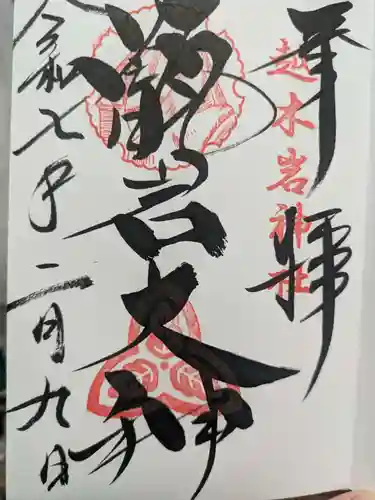 奉拝
越木岩神社
甑岩大神
令和七年二月九日